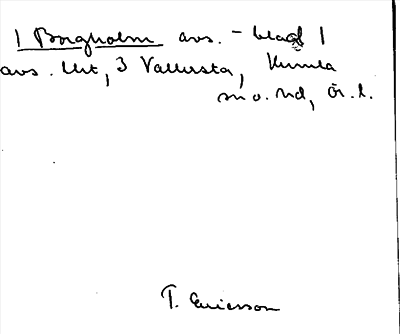 1 Borgholm avs. - 1
avs. Urt, 3 Vallersta, Kumla
sn o. hd, Ör. l.
T. Ericsson